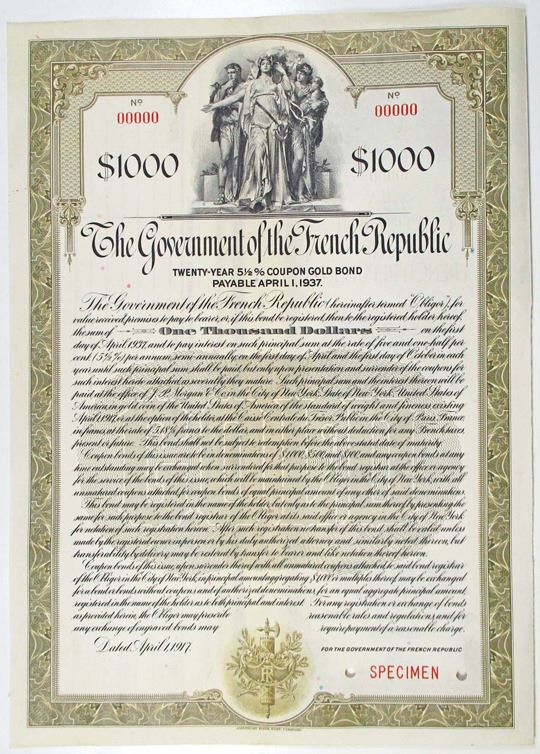 Nº
00000
Nº
00000
$1000
$1000
The Government of the French Republic
TWENTY-YEAR 5½% COUPON GOLD BOND
PAYABLE APRIL 1, 1937.
The Government of the French Republic (hereinafter termed "Obligor"), for
value received promises to pay to bearer, or, if this bond be registered, then to the registered holder hereof,
the sum of One Thousand Dollars on the first
day of April 1937, and to pay interest on such principal sum at the rate of five and one-half per
cent (5½%) per annum, semi-annually, on the first day of April and the first day of October in each
year until such principal sum shall be paid, but only upon presentation and surrender of the coupons for
such interest hereto attached as severally they mature. Such principal sum and the interest thereon will be
paid at the office of J. P. Morgan & Co. in the City of New York, State of New York, United States of
America, in gold coin of the United States of America of the standard of weight and fineness existing
April 1, 1917, or, at the option of the holder, at the Caisse Centrale du Trésor Public in the City of Paris, France,
in francs, at the rate of 5.18¾ francs to the dollar, and in either place without deduction for any French taxes,
present or future. This bond shall not be subject to redemption before the above stated date of maturity.
Coupon bonds of this issue are to be in denominations of $1,000, $500 and $100, and any coupon bonds at any
time outstanding may be exchanged when surrendered for that purpose to the bond registrar at the office or agency
for the service of the bonds of this issue, which will be maintained by the Obligor in the City of New York, with all
unmatured coupons attached, for coupon bonds of equal principal amount of any other of said denominations.
This bond may be registered in the name of the holder, but only as to the principal sum thereof, by presenting the
same for such purpose to the bond registrar of the Obligor at its said office or agency in the City of New York
for notation of such registration hereon. After such registration no transfer of this bond shall be valid unless
made by the registered owner in person or by his duly authorized attorney and similarly noted thereon, but
transferability by delivery may be restored by transfer to bearer and like notation thereof hereon.
Coupon bonds of this issue, upon surrender thereof with all unmatured coupons attached, to said bond registrar
of the Obligor in the City of New York, in principal amount aggregating $1,000 or multiples thereof, may be exchanged
for a bond or bonds without coupons and of authorized denominations, for an equal aggregate principal amount
registered in the name of the holder as to both principal and interest. For any registration or exchange of bonds
as provided herein, the Obligor may prescribe reasonable rules and regulations, and for
any exchange of engraved bonds may require payment of a reasonable charge.
Dated, April 1, 1917.
FOR THE GOVERNMENT OF THE FRENCH REPUBLIC
RF
SPECIMEN
AMERICAN BANK NOTE COMPANY.